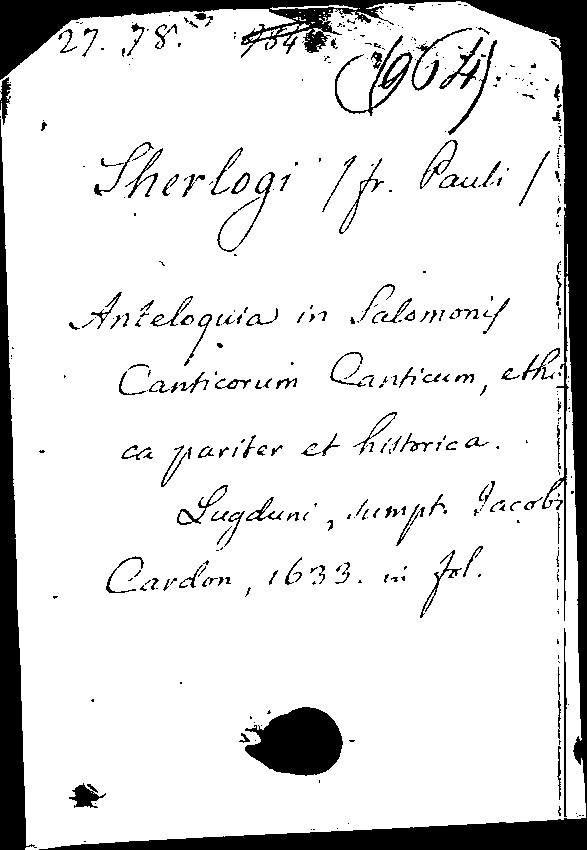 27. 78. 984
(964)
Sherlogi / fr. Pauli /
Anteloquia in Salomonis
Canticorum Canticum, ethi
ca pariter et historica.
Lugduni, sumpt. Jacobi
Cardon, 1633. in fol.